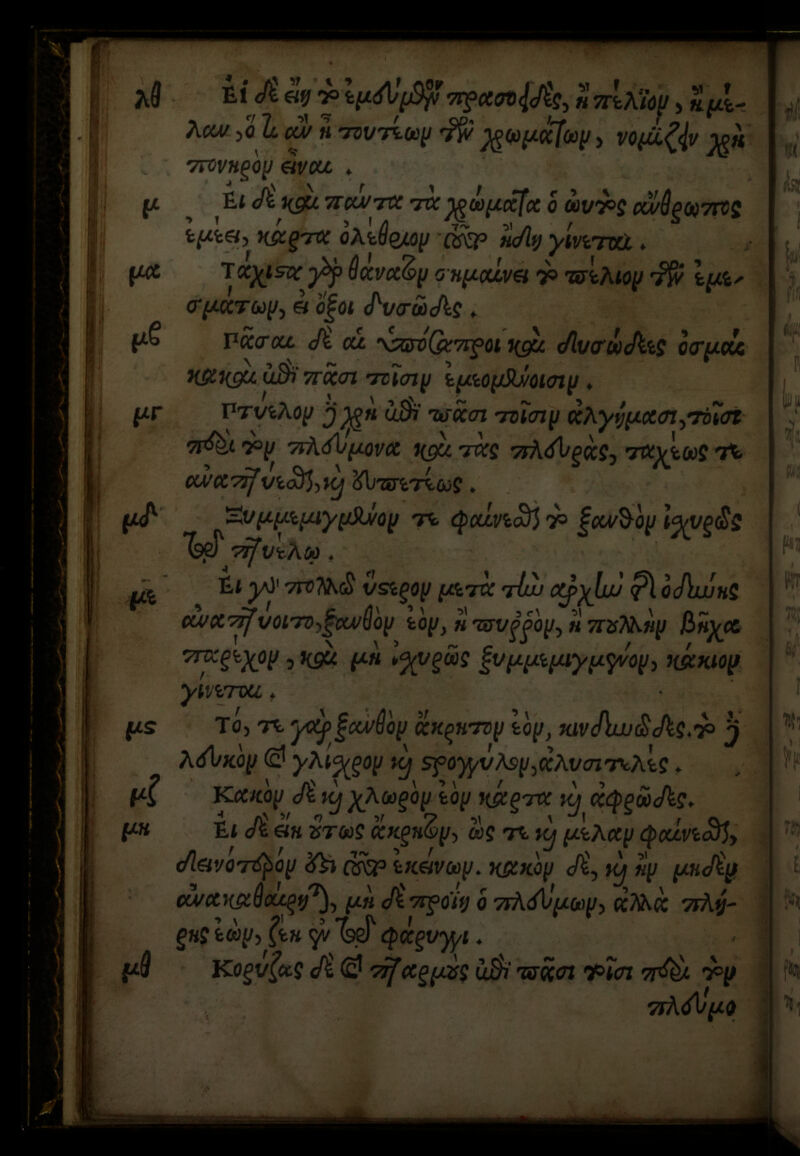 λθ Εἰ δὲ εἴη τὸ ἐμεύμενον πρασοειδὲς, ἢ πέλϊον, ἢ μέ-
λαν, ὅ τι ἂν ᾖ τουτέων τῶν χρωμάτων, νομίζειν χρὴ
πονηρὸν εἶναι.
μ Εἰ δὲ καὶ πάντα τὰ χρώματα ὁ ὠυτὸς ἄνθρωπος
ἐμέει, κάρτα ὀλέθριον ἤδη γίνεται.
μα Τάχιστα γὰρ θάνατον σημαίνει τὸ πέλιον τῶν ἐμε-
σμάτων, εἰ ὄζοι δυσῶδες.
μβ Πᾶσαι δὲ αἱ ὑπόσαπροι καὶ δυσώδεες ὀσμαὶ
κακαὶ ἐπὶ πᾶσι τοῖσιν ἐμεομένοισιν.
μγ Πτύελον δὲ χρὴ ἐπὶ πᾶσι τοῖσιν ἀλγήμασι, τοῖσι
περὶ τὸν πλεύμονα καὶ τὰς πλευρὰς, ταχέως τε
ἀναπτύεσθαι, καὶ εὐπετέως.
μδ Ξυμμεμιγμένον τε φαίνεσθαι τὸ ξανθὸν ἰσχυρῶς
τῷ πτυέλῳ.
με Εἰ γὰρ πολλῷ ὕστερον μετὰ τὴν ἀρχὴν τῆς ὀδύνης
ἀναπτύοιτο, ξανθὸν ἐὸν, ἢ πυῤῥὸν, ἢ πολλὴν βῆχα
παρέχον, καὶ μὴ ἰσχυρῶς ξυμμεμιγμένον, κάκιον
γίνεται.
μς Τό, τε γὰρ ξανθὸν ἄκρητον ἐὸν, κινδυνῶδες, τὸ δὲ
λευκὸν καὶ γλίσχρον καὶ στρογγύλον, ἀλυσιτελές.
μζ Κακὸν δὲ καὶ χλωρὸν ἐὸν κάρτα καὶ ἀφρῶδες.
μη Εἰ δὲ εἴη οὕτως ἄκρητον, ὥς τε καὶ μέλαν φαίνεσθαι,
δεινότερόν ἐστι τοῦτο ἐκείνων. κακὸν δὲ, καὶ ἢν μηδὲν
ἀνακαθαίρηται, μὴ δὲ προΐῃ ὁ πλεύμων, ἀλλὰ πλή-
ρης ἐὼν, ζέῃ ἐν τῷ φάρυγγι.
μθ Κορύζας δὲ καὶ πταρμοὺς ἐπὶ πᾶσι τοῖσι περὶ τὸν
πλεύμο